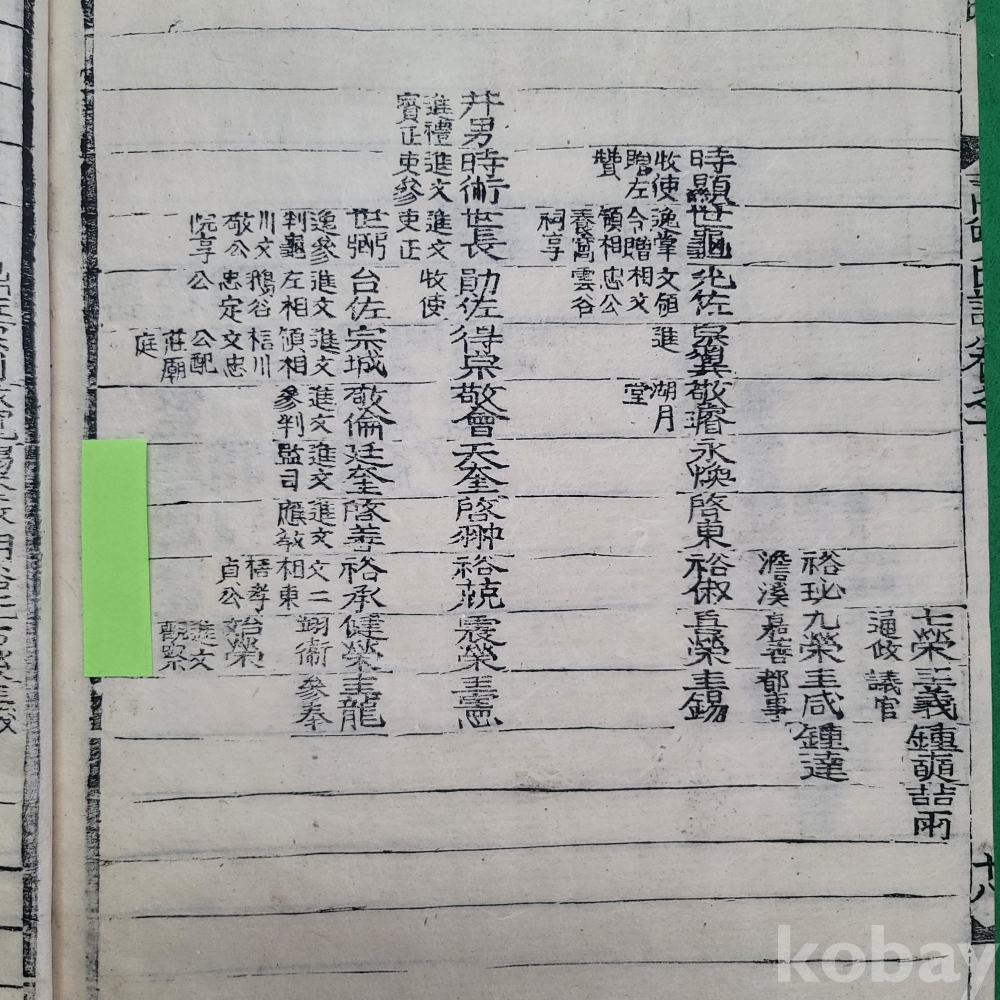 七榮圭義鍾奭喆雨
通政議官
裕玭九榮圭咸鍾達
澹溪嘉善都事
時顯世龜光佐宗翼敬璿永煥啓東裕俶昌榮圭錫
牧使逸掌文領進湖月
贈左令贈相文堂
贊領相忠公
養窩雲谷
祠享
井男時術世長勛佐得宗敬會天奎啓翀裕兢震榮圭憲
進禮進文進文牧使
賓正吏參吏正
世弼台佐宗城敬倫廷奎啓善裕承健榮圭龍
逸參進文進文進文進文進文文二翊衛參奉
判龜左相領相參判監司應敎相東
川文鵝谷梧川梧孝始榮
敬公忠定文忠貞公進文
院享公公配觀察
莊廟
庭
十八
kobay